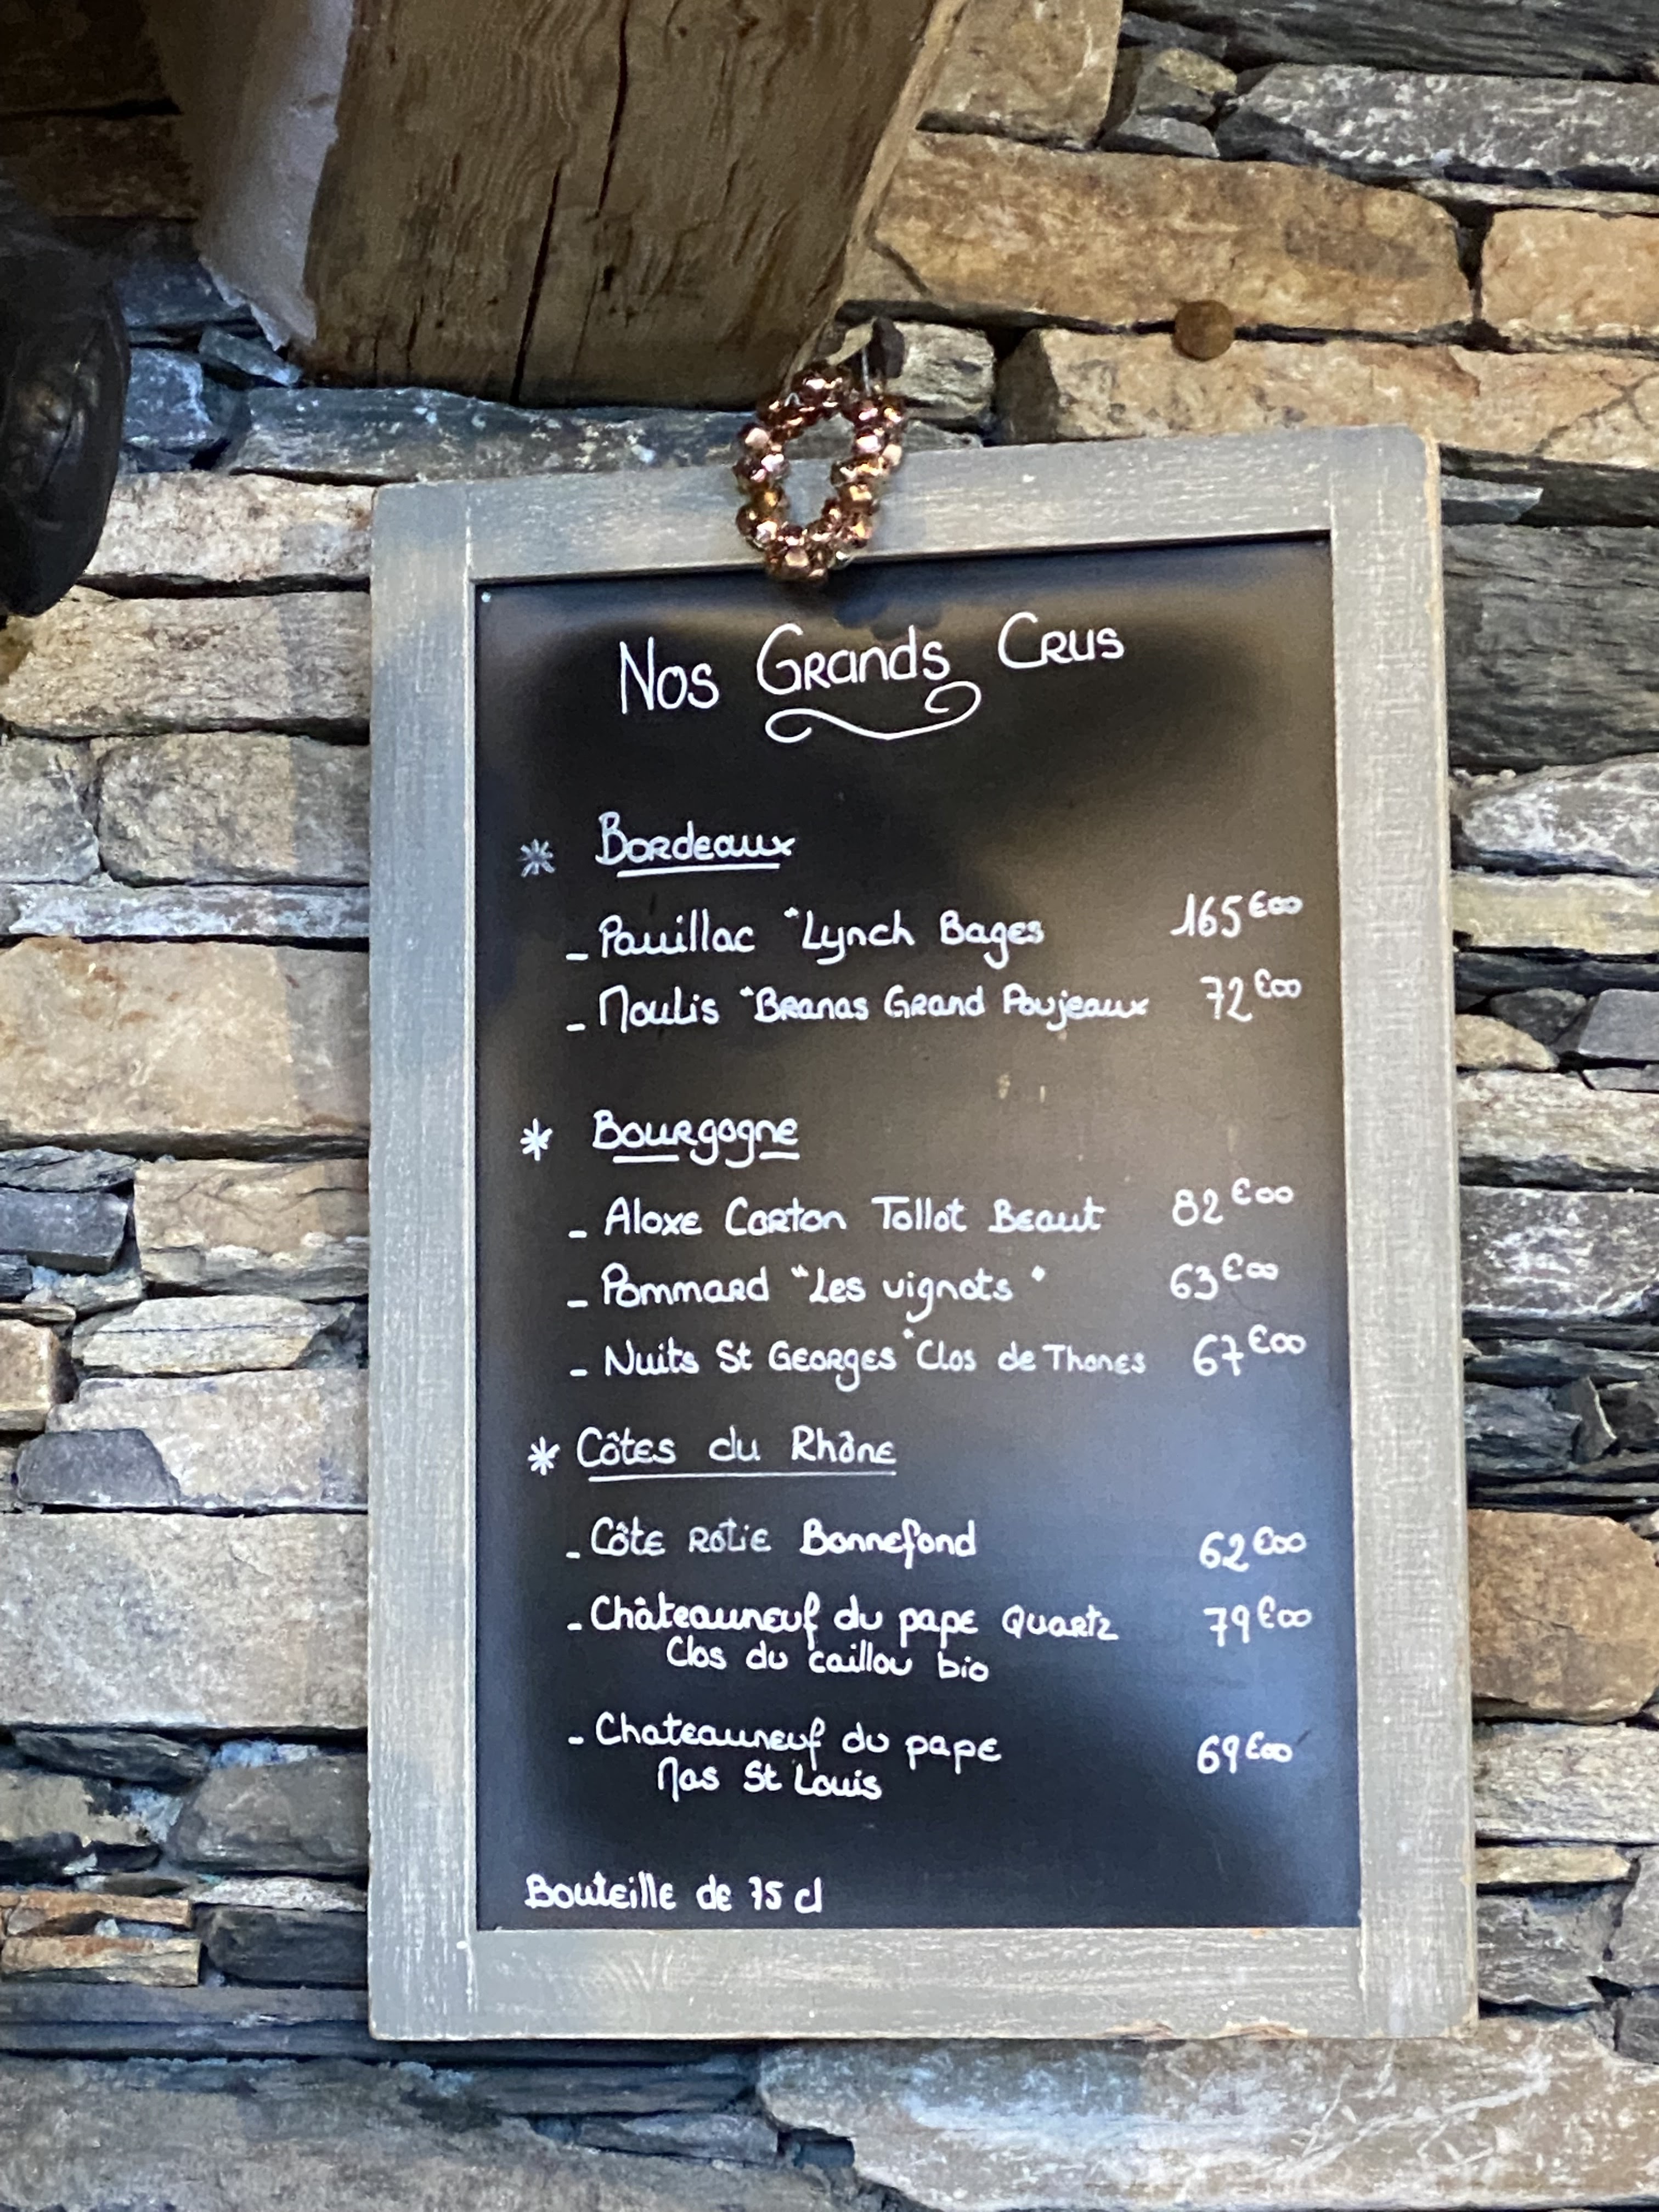 Nos Grands Crus
* Bordeaux
- Pauillac "Lynch Bages 165€00
- Moulis "Branas Grand Poujeaux 72€00
* Bourgogne
- Aloxe Corton Tollot Beaut 82€00
- Pommard "Les vignots" 63€00
- Nuits St Georges "Clos de Thones 67€00
* Côtes du Rhône
- Côte Rôtie Bonnefond 62€00
- Châteauneuf du pape Quartz 79€00
Clos du caillou bio
- Chateauneuf du pape 69€00
Mas St Louis
Bouteille de 75 cl